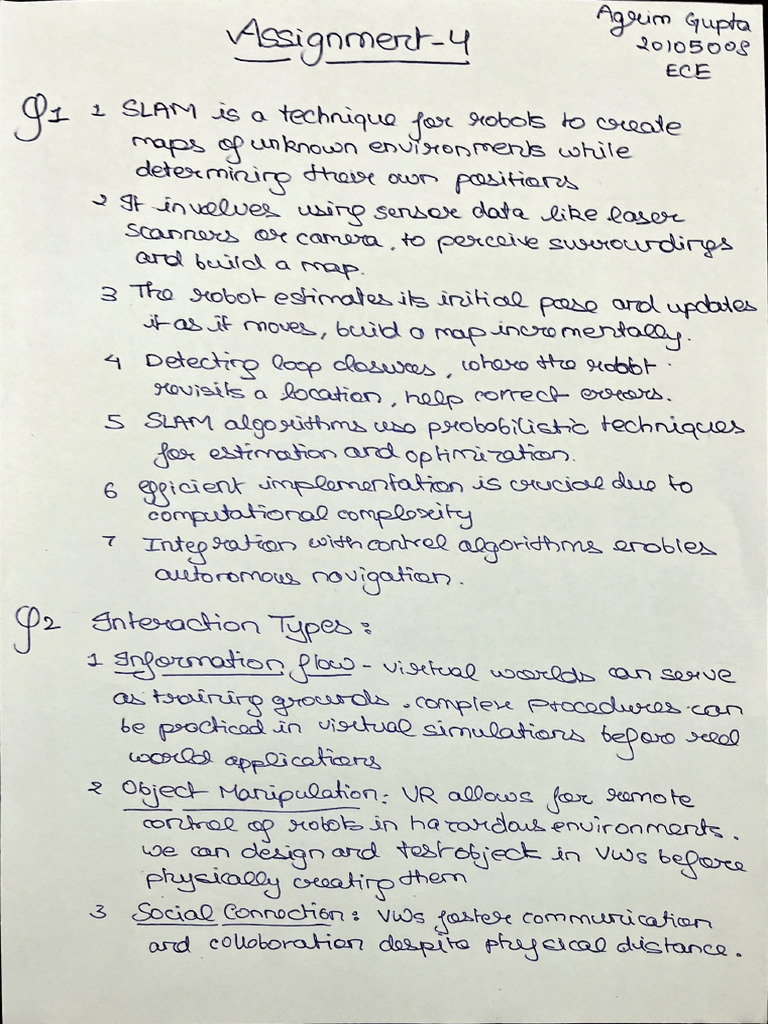 Assignment-4
Agrim Gupta
20105008
ECE
Q1 1 SLAM is a technique for robots to create
maps of unknown environments while
determining their own positions
2 It involves using sensor data like laser
scanners or camera, to perceive surroundings
and build a map.
3 The robot estimates its initial pose and updates
it as it moves, build a map incrementally.
4 Detecting loop closures, where the robot
revisits a location, help correct errors.
5 SLAM algorithms use probobilistic techniques
for estimation and optimization.
6 efficient implementation is crucial due to
computational complexity
7 Integration with control algorithms enables
autonomous navigation.
Q2 Interaction Types:
1 Information flow - virtual worlds can serve
as training grounds. complex procedures can
be practiced in virtual simulations before real
world applications
2 Object Manipulation: VR allows for remote
control of robots in hazardous environments.
we can design and test object in VWs before
physically creating them
3 Social Connection: VWs foster communication
and colloboration despite physical distance.